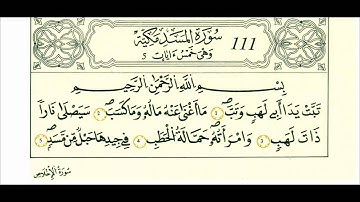 سُورَةُ الْمَسَدِ مَكِّيَّةٌ 111
وَهِيَ خَمْسُ ءَايَاتٍ 5
بِسْمِ اللَّهِ الرَّحْمَٰنِ الرَّحِيمِ
تَبَّتْ يَدَا أَبِي لَهَبٍ وَتَبَّ ١ مَا أَغْنَىٰ عَنْهُ مَالُهُ وَمَا كَسَبَ ٢ سَيَصْلَىٰ نَارًا
ذَاتَ لَهَبٍ ٣ وَامْرَأَتُهُ حَمَّالَةَ الْحَطَبِ ٤ فِي جِيدِهَا حَبْلٌ مِّن مَّسَدٍ ٥
سُورَةُ الْإِخْلَاصِ